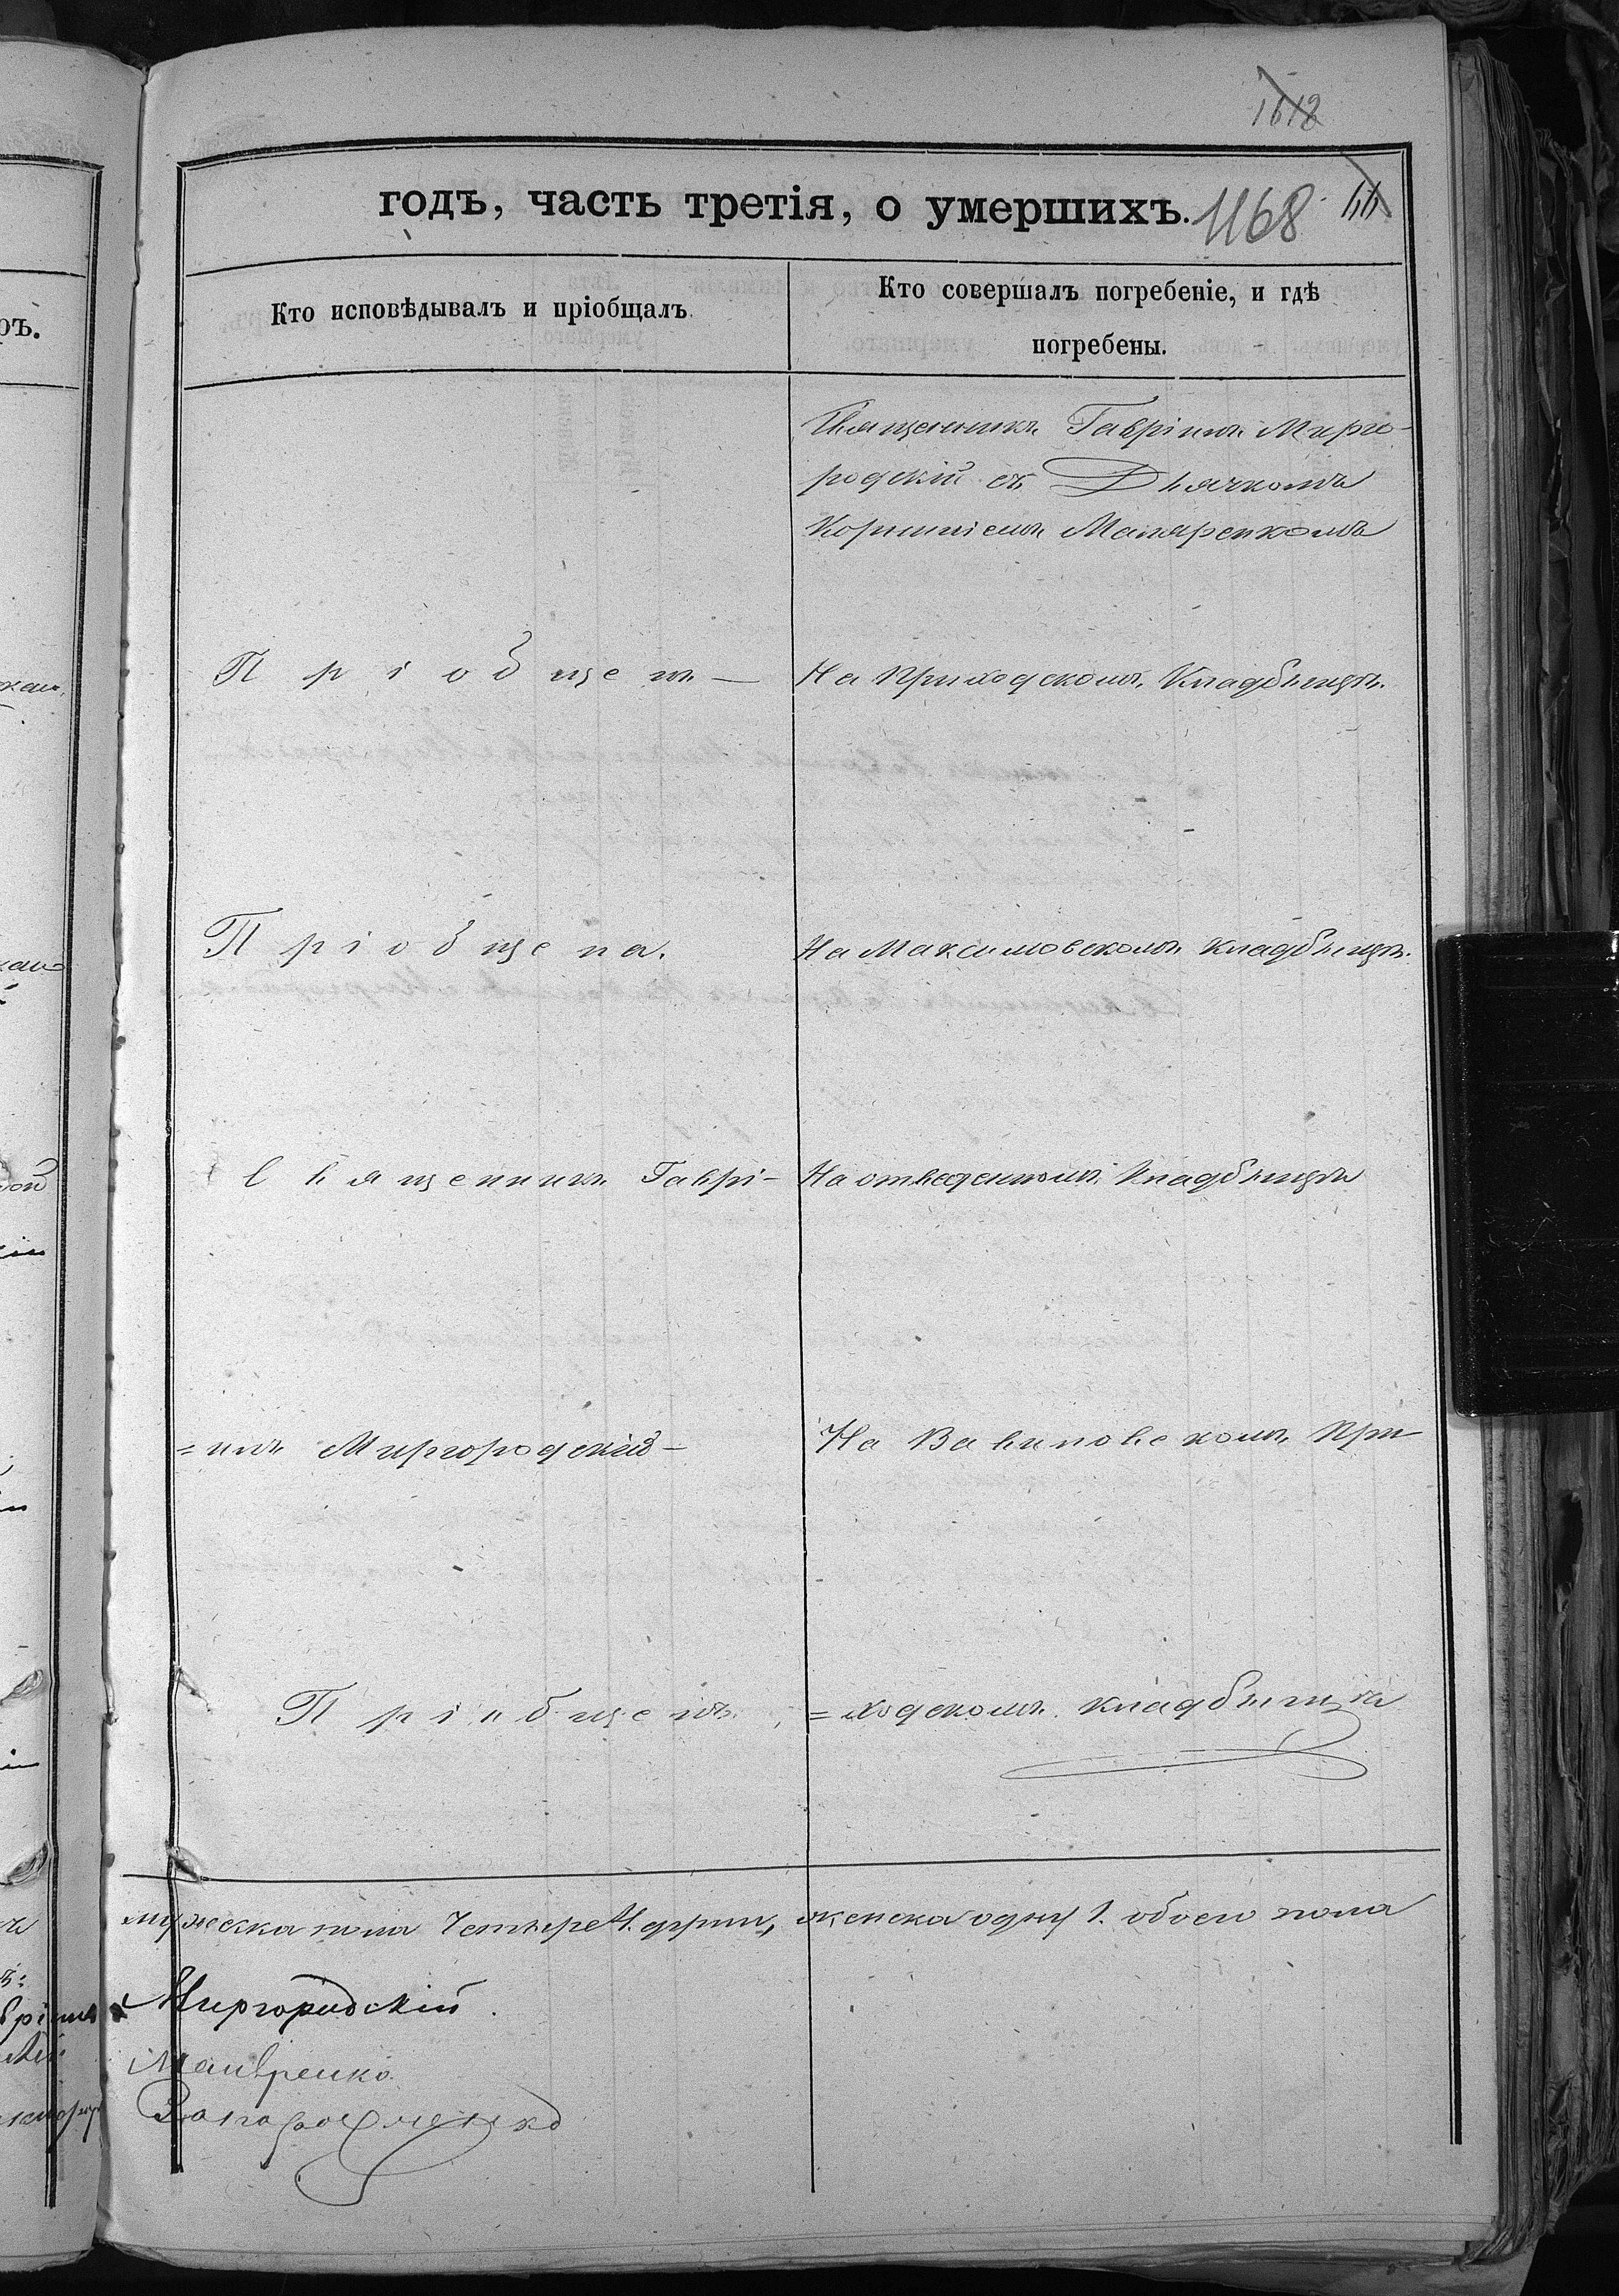 1618
годъ, часть третія, о умершихъ. 1168
Кто исповѣдывалъ и пріобщалъ.
Кто совершалъ погребеніе, и гдѣ
погребены.
Священникъ Гавріилъ Мирго-
родскій съ Дьячкомъ
Корниліемъ Маляренкомъ
Пріобщенъ —
На Приходскомъ Кладбищѣ.
Пріобщена.
На Максимовскомъ Кладбищѣ.
Священникъ Гаврі-
На отведенномъ Кладбищѣ
=илъ Миргородскій —
На Вавиловскомъ При-
Пріобщенъ.
=ходскомъ кладбищѣ
мужеска пола Четыре 4. женска одну 1. обоего пола
Миргородскій.
Маляренко